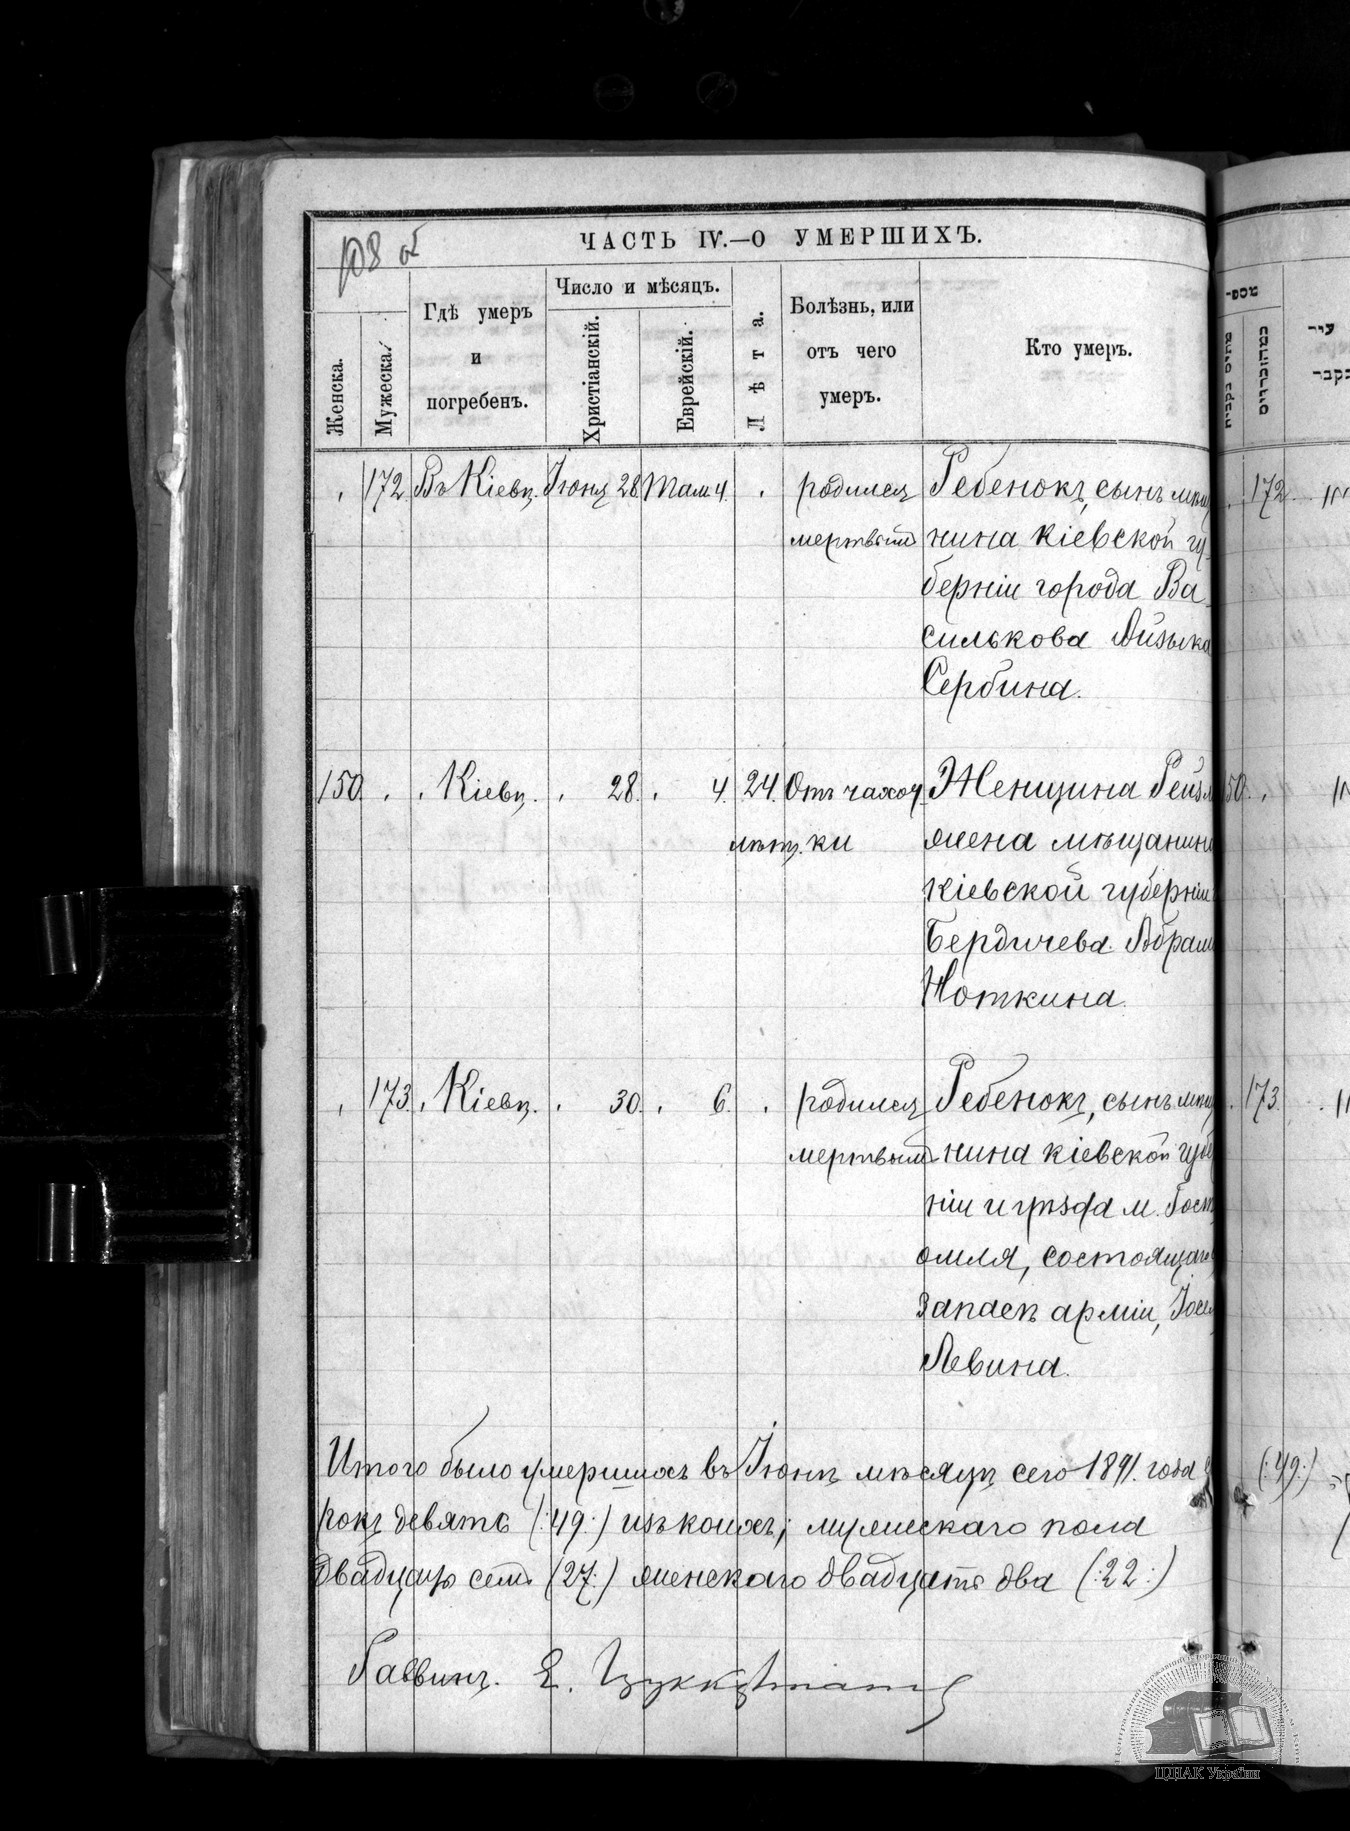 108 об
ЧАСТЬ IV.—О УМЕРШИХЪ.
Женска.
Мужеска.
Гдѣ умеръ
и
погребенъ.
Число и мѣсяцъ.
Христіанскій.
Еврейскій.
Лѣта.
Болѣзнь, или
отъ чего
умеръ.
Кто умеръ.
172 Въ Кіевѣ. Іюня 28 Там. 4. родился Ребенокъ, сынъ мѣща
мертвый нина Кіевской гу-
берніи города Ва-
силькова Айзыка
Сербина.
150. Кіевѣ. 28. 4. 24 Отъ чахот Женщина Рейзя
лѣтъ. ки жена мѣщанина
Кіевской губерніи
Бердичева Абрама
Ноткина.
173. Кіевѣ. 30. 6. родился Ребенокъ, сынъ мѣща
мертвый нина Кіевской губер
ніи и уѣзда м. Гост
омля, состоящаго
запасѣ арміи, Іосел
Левина.
Итого было умершихъ въ Іюнѣ мѣсяцѣ сего 1891. года со
рокъ девять (:49:) изъ коихъ; мужескаго пола
двадцать семь (27:) женскаго двадцать два (:22:)
Раввинъ. Е. Цуккерманъ
172
150
173
(:49:)
ЦДІАК України